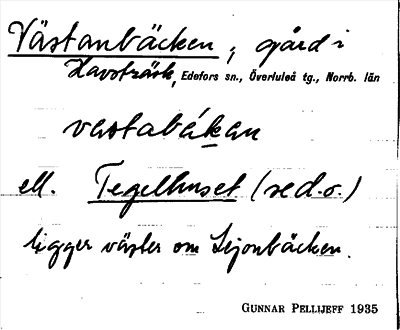 Västanbäcken, gård i
Havsträsk, Edefors sn., Överluleå tg., Norrb. län
vastabákan
ell. Tegelhuset (se d.o.)
ligger väster om Lejonbäcken.
GUNNAR PELLIJEFF 1935